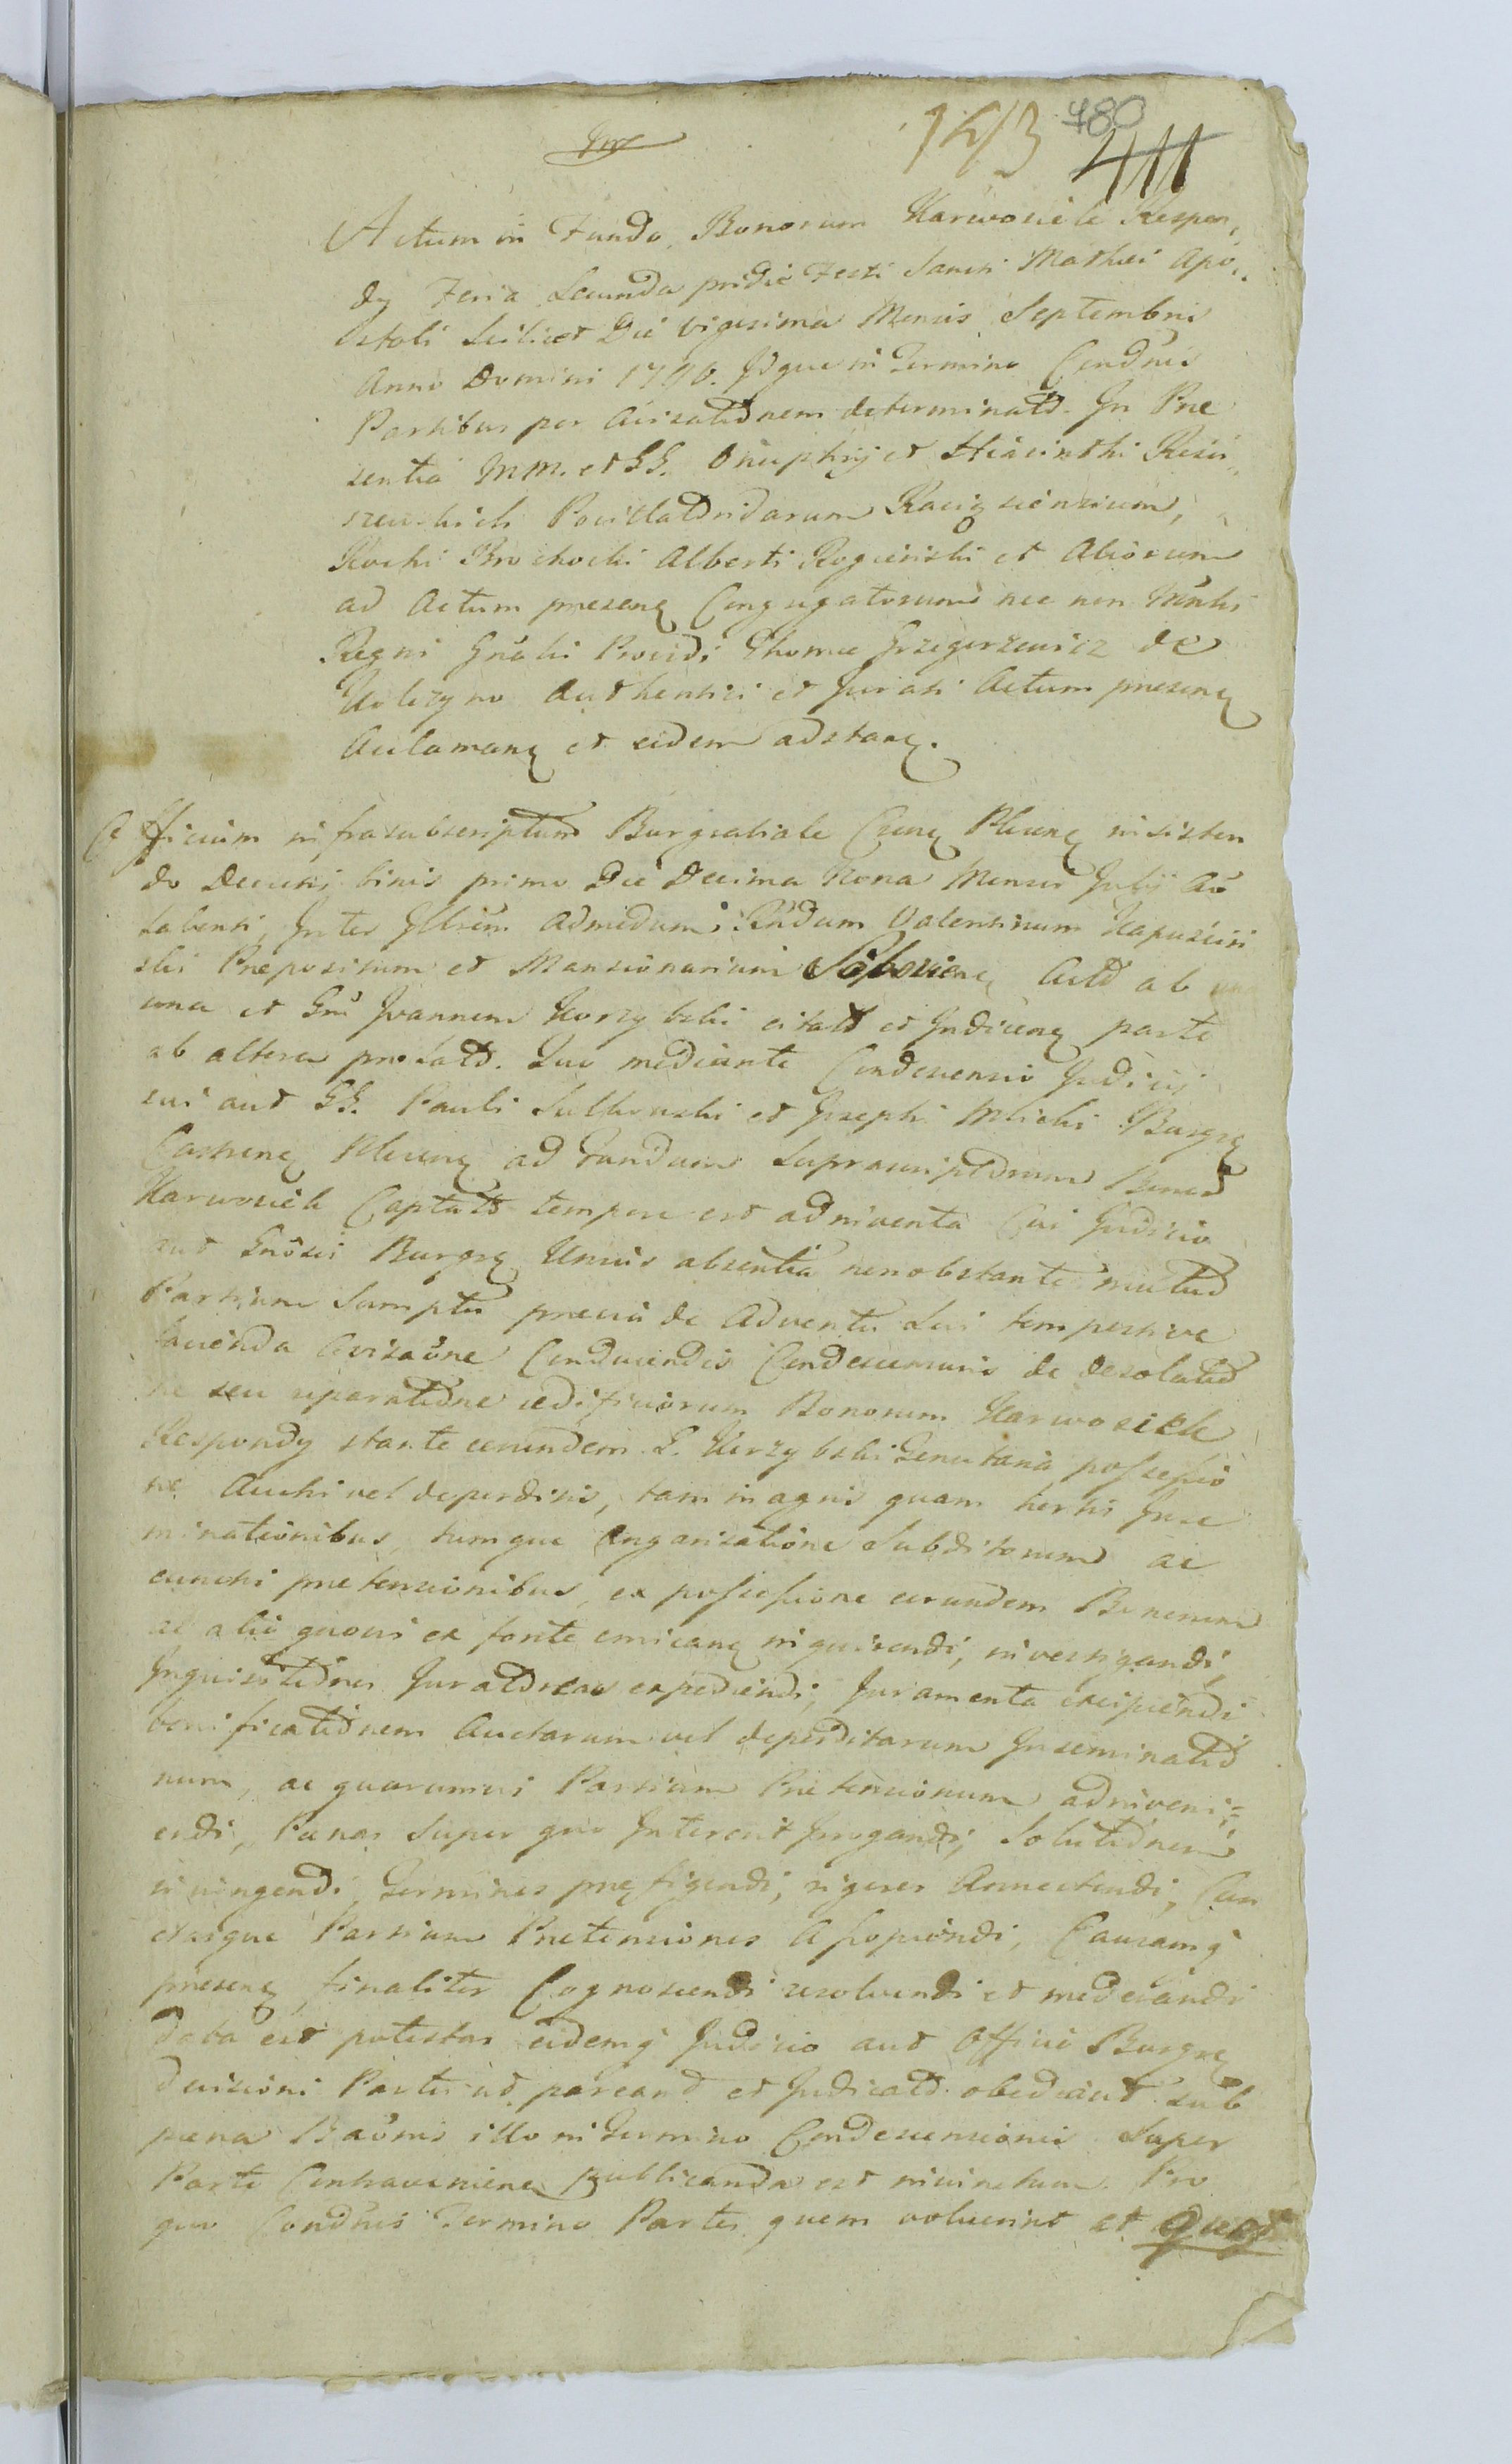 1213 480
411
Actum in Fundo Bonorum Karwosieki Respon,
dy Feria Secunda pridie Festi Sancti Mathei Apo,
stoli Scilicet Die vigesima Mensis Septembris
Anno Domini 1790. Idque in Termino Condnis
Partibus per Avisatnem determinato. In Prae
sentia MM. et GG. Onuphrij et Hiacinthi Rości
szewskich Pocillatoridarum Raciąziensium,
Rochi Brochocki Alberti Rogieński et Aliorum
ad Actum praesens Congregatorum nec non Mintris
Regni Gnalis Providi Thomae Grzegorzewicz de
Kolczyno Authentici et Jurati Actum praesens
Acclamans et eidem adstans.
Officium infrasubscriptum Burgrabiale Crense Plscense insisten
do Decreti binis primo Die Decima Nona Mensis Julij Ao
labenti, Inter Illrem Admodum Rndum Valentinum Kapuściń
ski Praepositum et Mansionarium Actor ab
una et Gnm Joannem Korzybski citato et Judicens parte
ab altera prolato. Quo mediante Condescensio Judicij
sui aut GG. Pauli Sulkowski et Josephi Mlicki Burgr
Castrens Plscens ad Fundum Suprascriptorum Bonor
Karwosieki Captato tempore est adinventa Cui Judicio
aut Gnosis Burgr Unius absentia nonobstante mutuo
Partium Sumptu praevia de Adventu Sui tempestive
facienda Avisaone Conducendis Condescensuris de desolatio
ne seu reparatione aedificiorum Bonorum Karwosieki
Respondy stante eorundem G. Korzybski Tenutaria possessio
ne Auctis vel deperditis, tam in agris quam hortis Inse
minationibus, tumque Angarisatione Subditorum ac
cunctis praetensionibus, ex possessione eorundem Bonorum
ac alio quovis ex fonte emicans inquirendi, investigandi,
Inquisitiones Juratorias expediendi, Juramenta excipiendi
bonificationem Auctarum vel deperditarum Inseminatio
num, ac quarumvis Partium Praetensionum adinveni=
endi, Paenas super quo Intererit Irrogandi, Solutionem
injungendi, Terminos praefigendi, rigores Annectendi, Cun
ctasque Partium Praetensiones Assopiendi, Causamq
praesens finaliter Cognoscendi resolvendi et mederandi
data est potestas eidemq Judicio aut Officio Burgr
decisioni Partes ut pareant et Judicato obediant sub
paena Baonis illo in Termino Condescensionis super
Parte Contraveniens publicanda est inivinctum. Pro
quo Condnis Termino Partes quem voluerint et quos